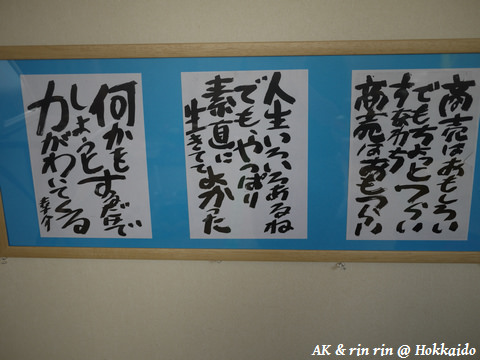 商売はおもしろい
でもちょっとつらい
すなわち
商売はおもつらい
人生いろいろあるね
でも、やっぱり
素直に
生きててよかった
何かを
しようとするだけで
力がわいてくる
AK & rin rin @ Hokkaido